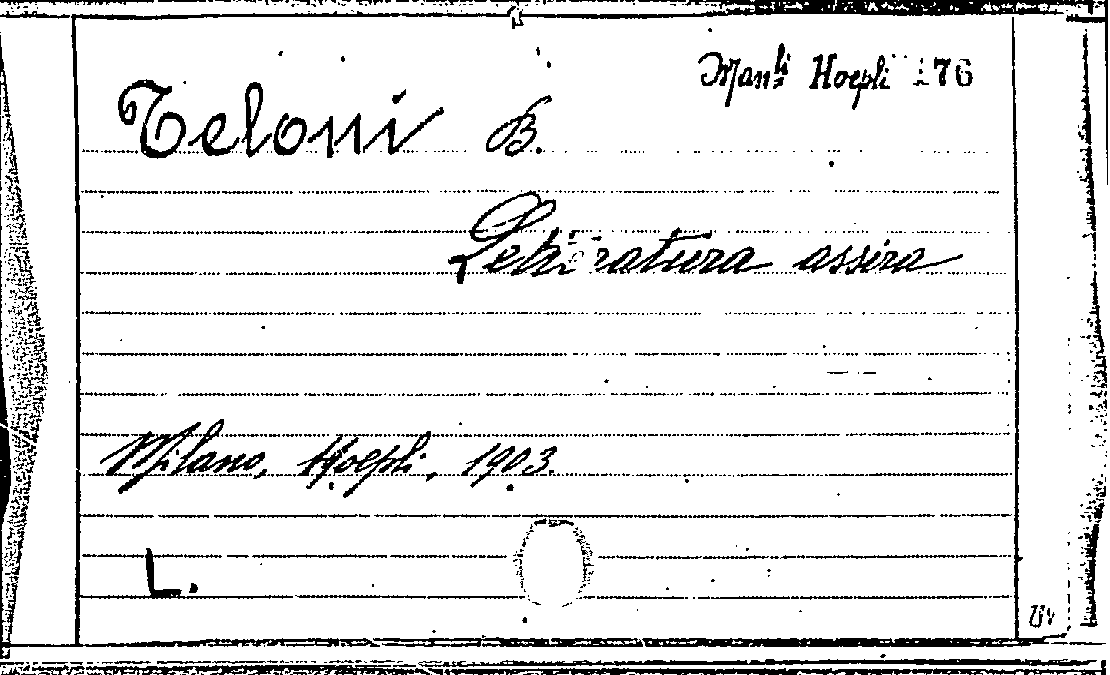 Man.li Hoepli 176
Teloni B.
Letteratura assira
Milano, Hoepli, 1903.
L.